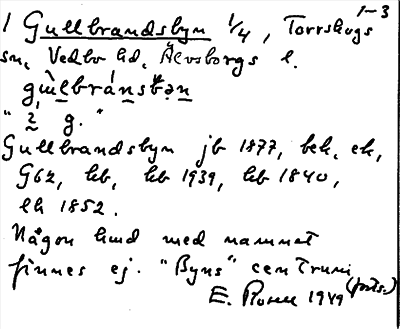 1-3
1 Gullbrandsbyn 1/4, Torrskogs
sn, Vedbo hd, Älvsborgs l.
gɯ̀lbránsb̥ən
" 2 g. "
Gullbrandsbyn jb 1877, bek, ek,
G62, hb, kb 1939, hb 1840,
lh 1852.
Någon hmd med namnet
finnes ej. "Byns" centrum
(forts.)
E. Rosell 1949